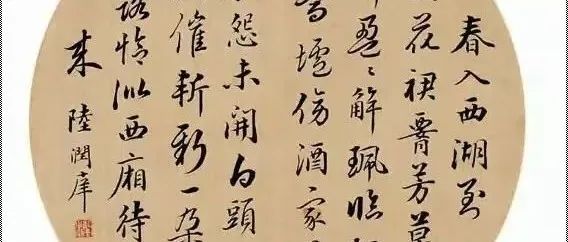 春入西湖到
花裙腰芳草
盈々解珮臨
當壚傍酒家
怨未開白頭
催斬新一朵
露恰似西廂待
來 陸潤庠